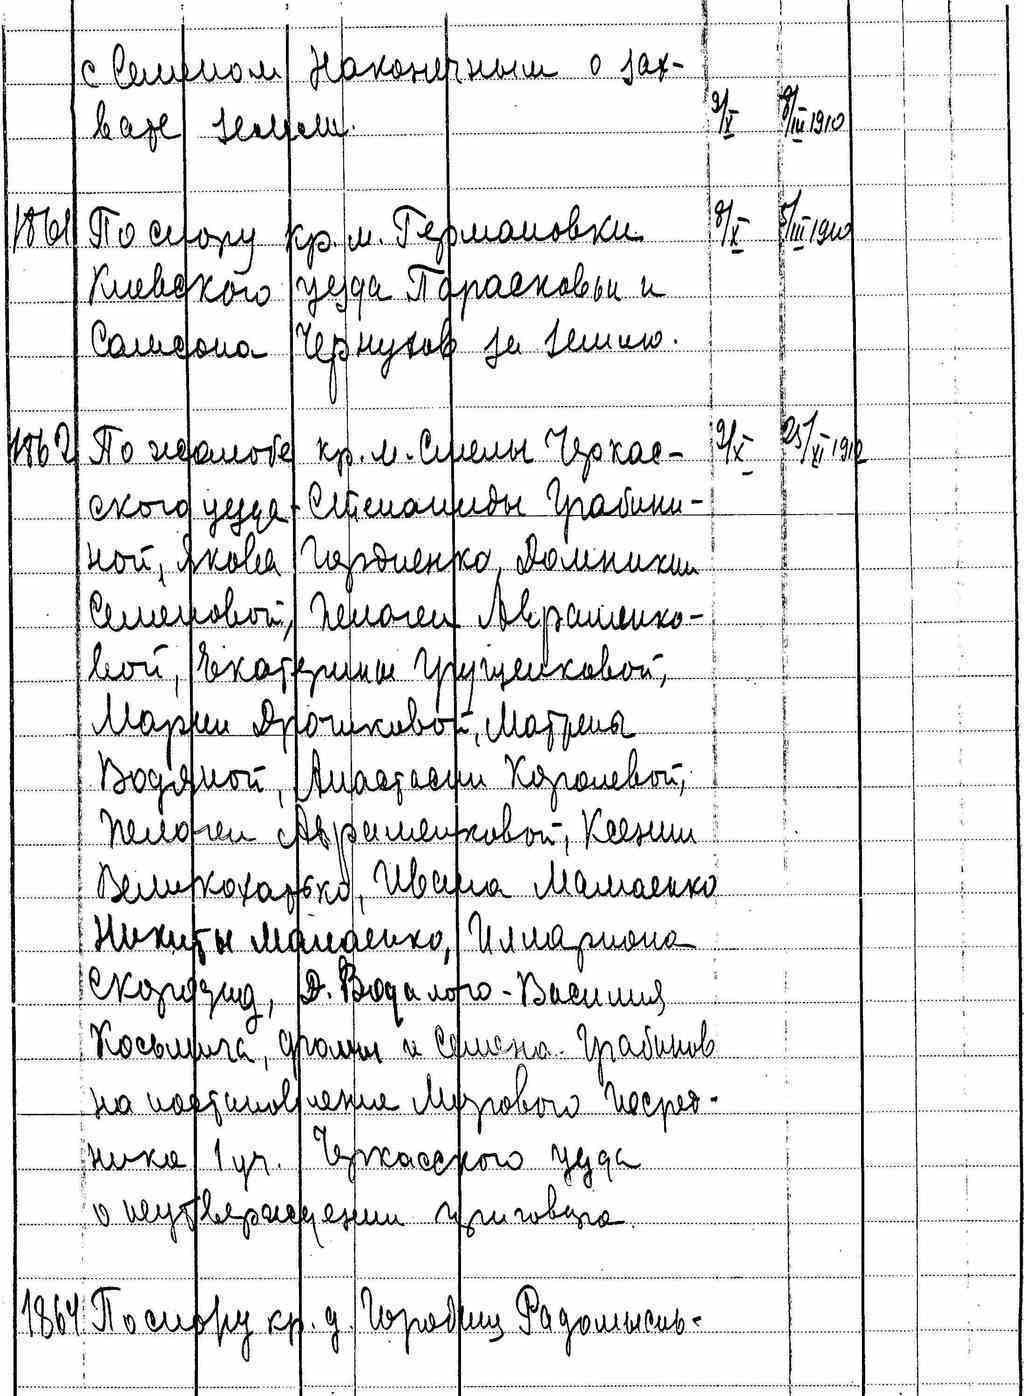 с Семеном Наконечным о зах-
вате земли. 9/X 8/III 1910
1861 По спору кр. м. Германовки 9/X 5/III 1910
Киевского уезда Парасковьи и
Самсона Чернухов за землю.
1862 По жалобе кр. м. Смелы Черкас- 9/X 25/XI 1912
ского уезда Степаниды Грабини-
ной, Якова Гордиенко, Домникии
Семеновой, Пелагеи Авраменко-
вой, Екатерины Грущенковой,
Марии Дрочиковой, Матрены
Водяной, Анастасии Королевой,
Пелагеи Авраменковой, Ксении
Великохатько, Ивана Мамаенко
Никиты Мамаенко, Иллариона
Скорозид, Д. Водалого-Василия
Косьмича, и Семена Грабинов
на постановление Мирового Посред-
ника 1 уч. Черкасского уезда
о неутверждении приговора.
1864 По спору кр. д. Городищ Радомысль-